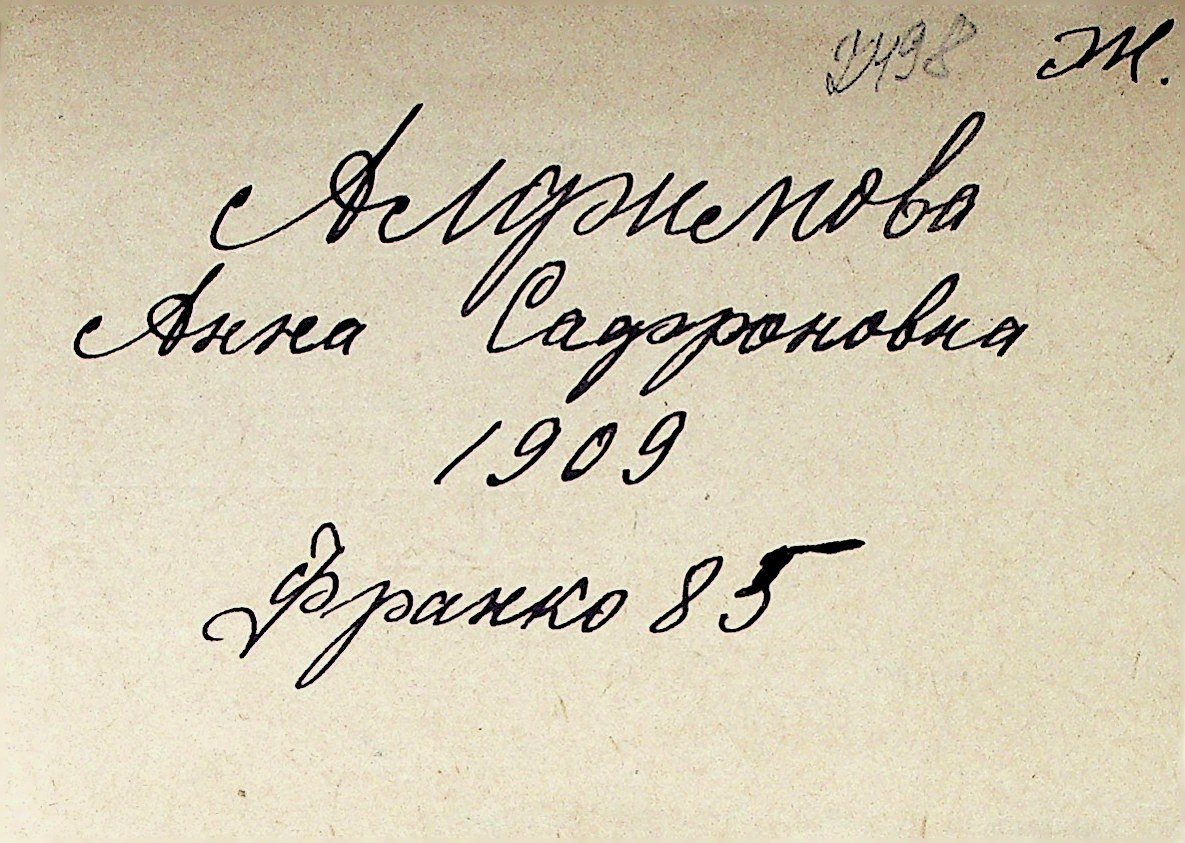 Ж.
Алфимова
Анна Сафроновна
1909
Франко 85